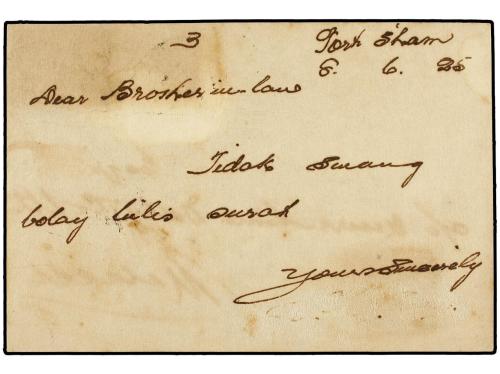 3 Fort Sham
8. 6. 25
Dear Brosher in-law
Tidak Smang
bolay tulis surat
Yours Sincerely